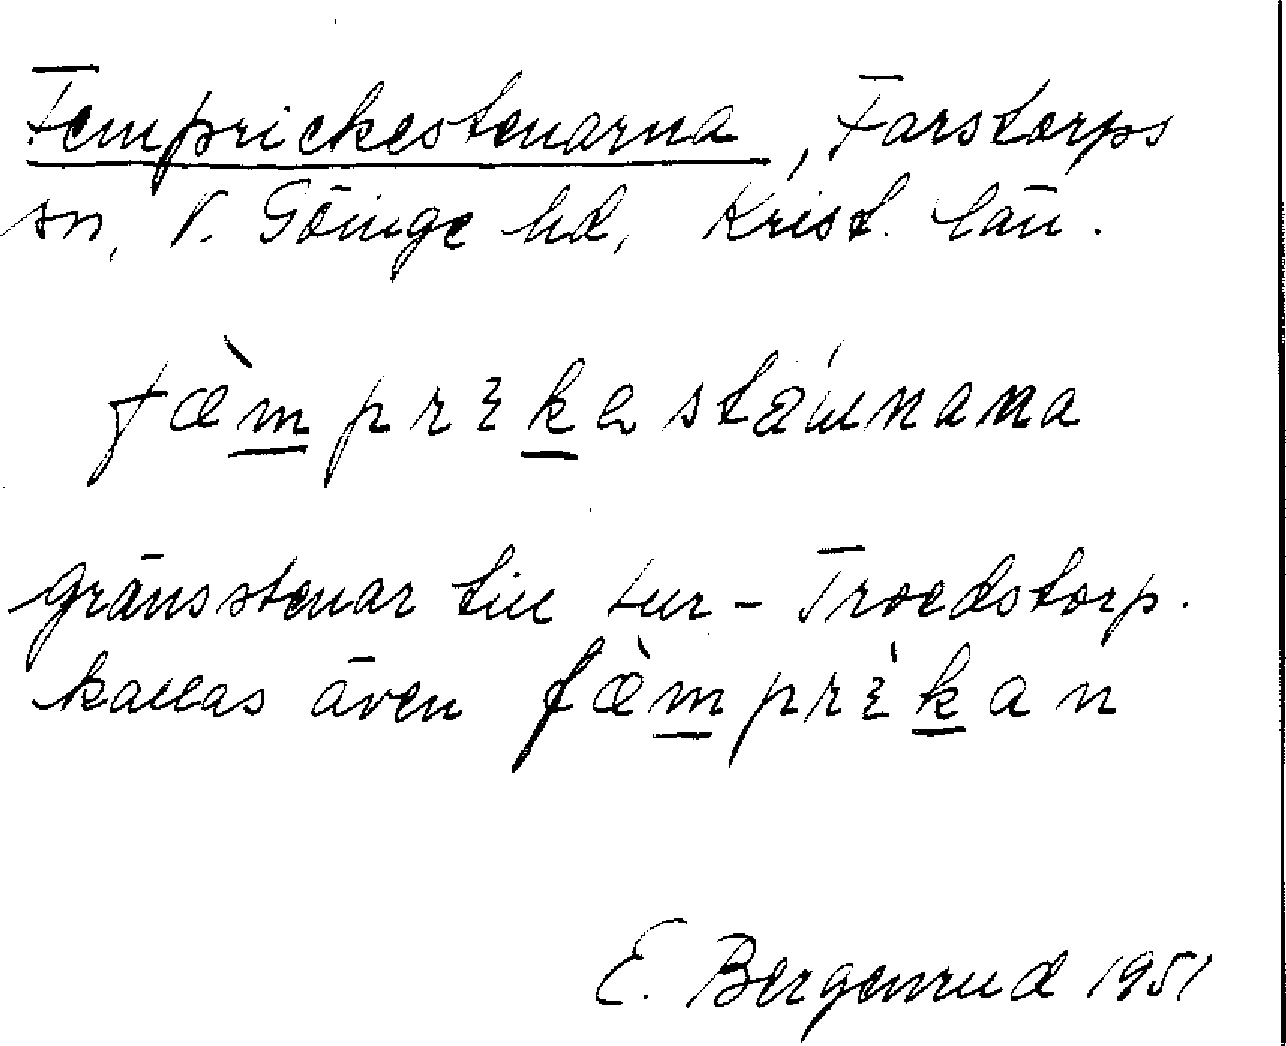 Femprickestenarna, Farstorps
sn, V. Göinge hd, Krist. län.
fæ̀m̲prɛk̲astáinana
gränsstenar till Troedstorp.
kallas även fæ̀m̲prɛ̀k̲an
E. Bergenrud 1951